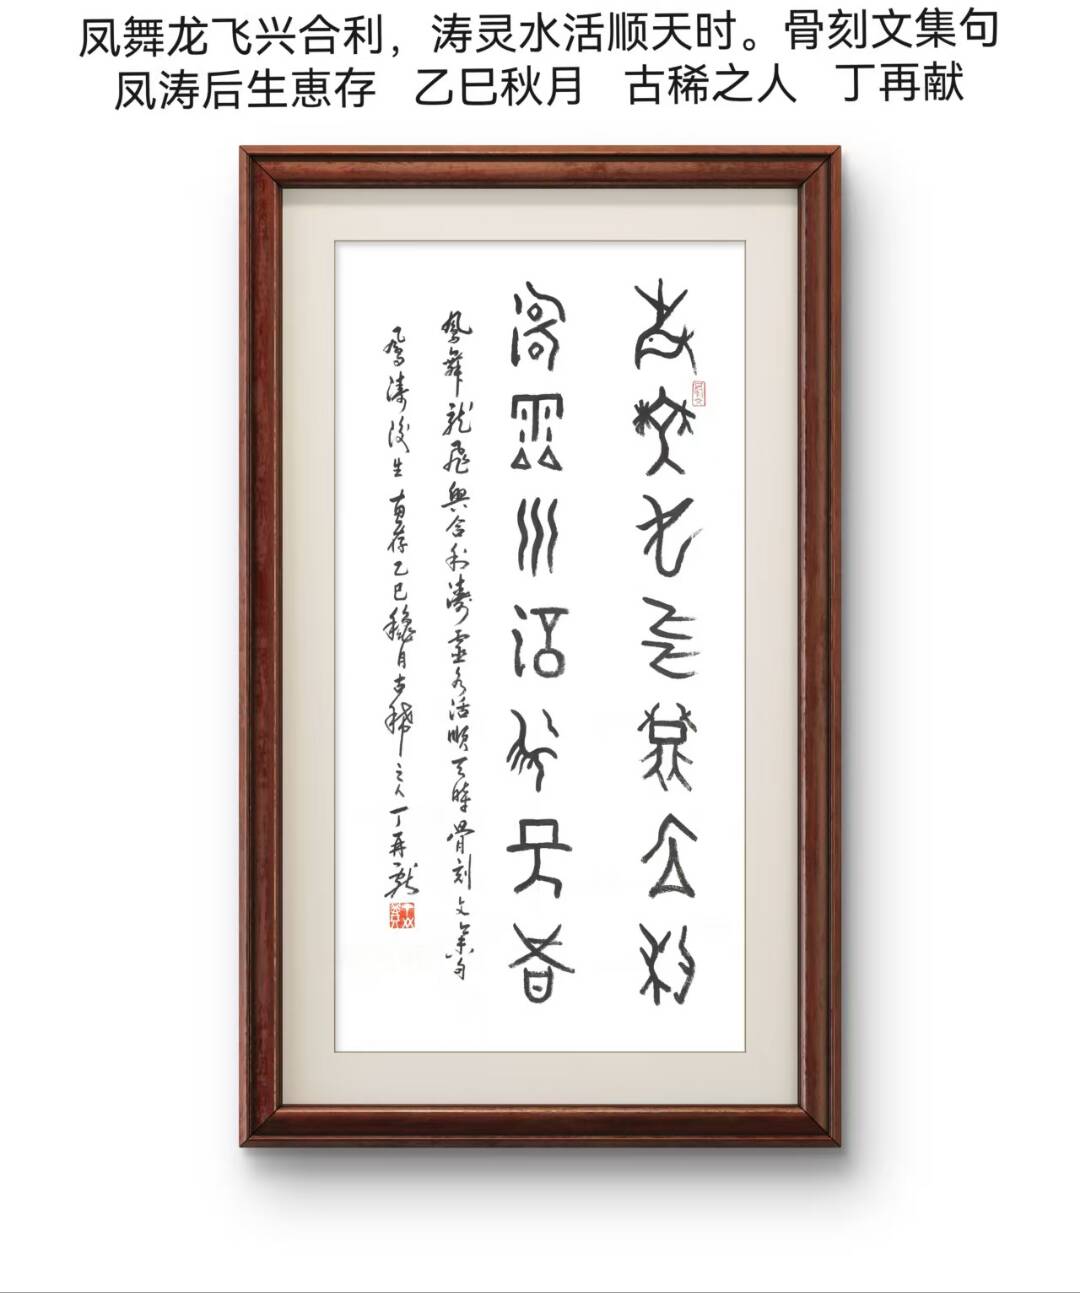 凤舞龙飞兴合利，涛灵水活顺天时。骨刻文集句
凤涛后生惠存 乙巳秋月 古稀之人 丁再献
鳳舞龍飛興合利濤靈水活順天時骨刻文集句
鳳濤後生惠存乙巳穐月古稀之人丁再獻